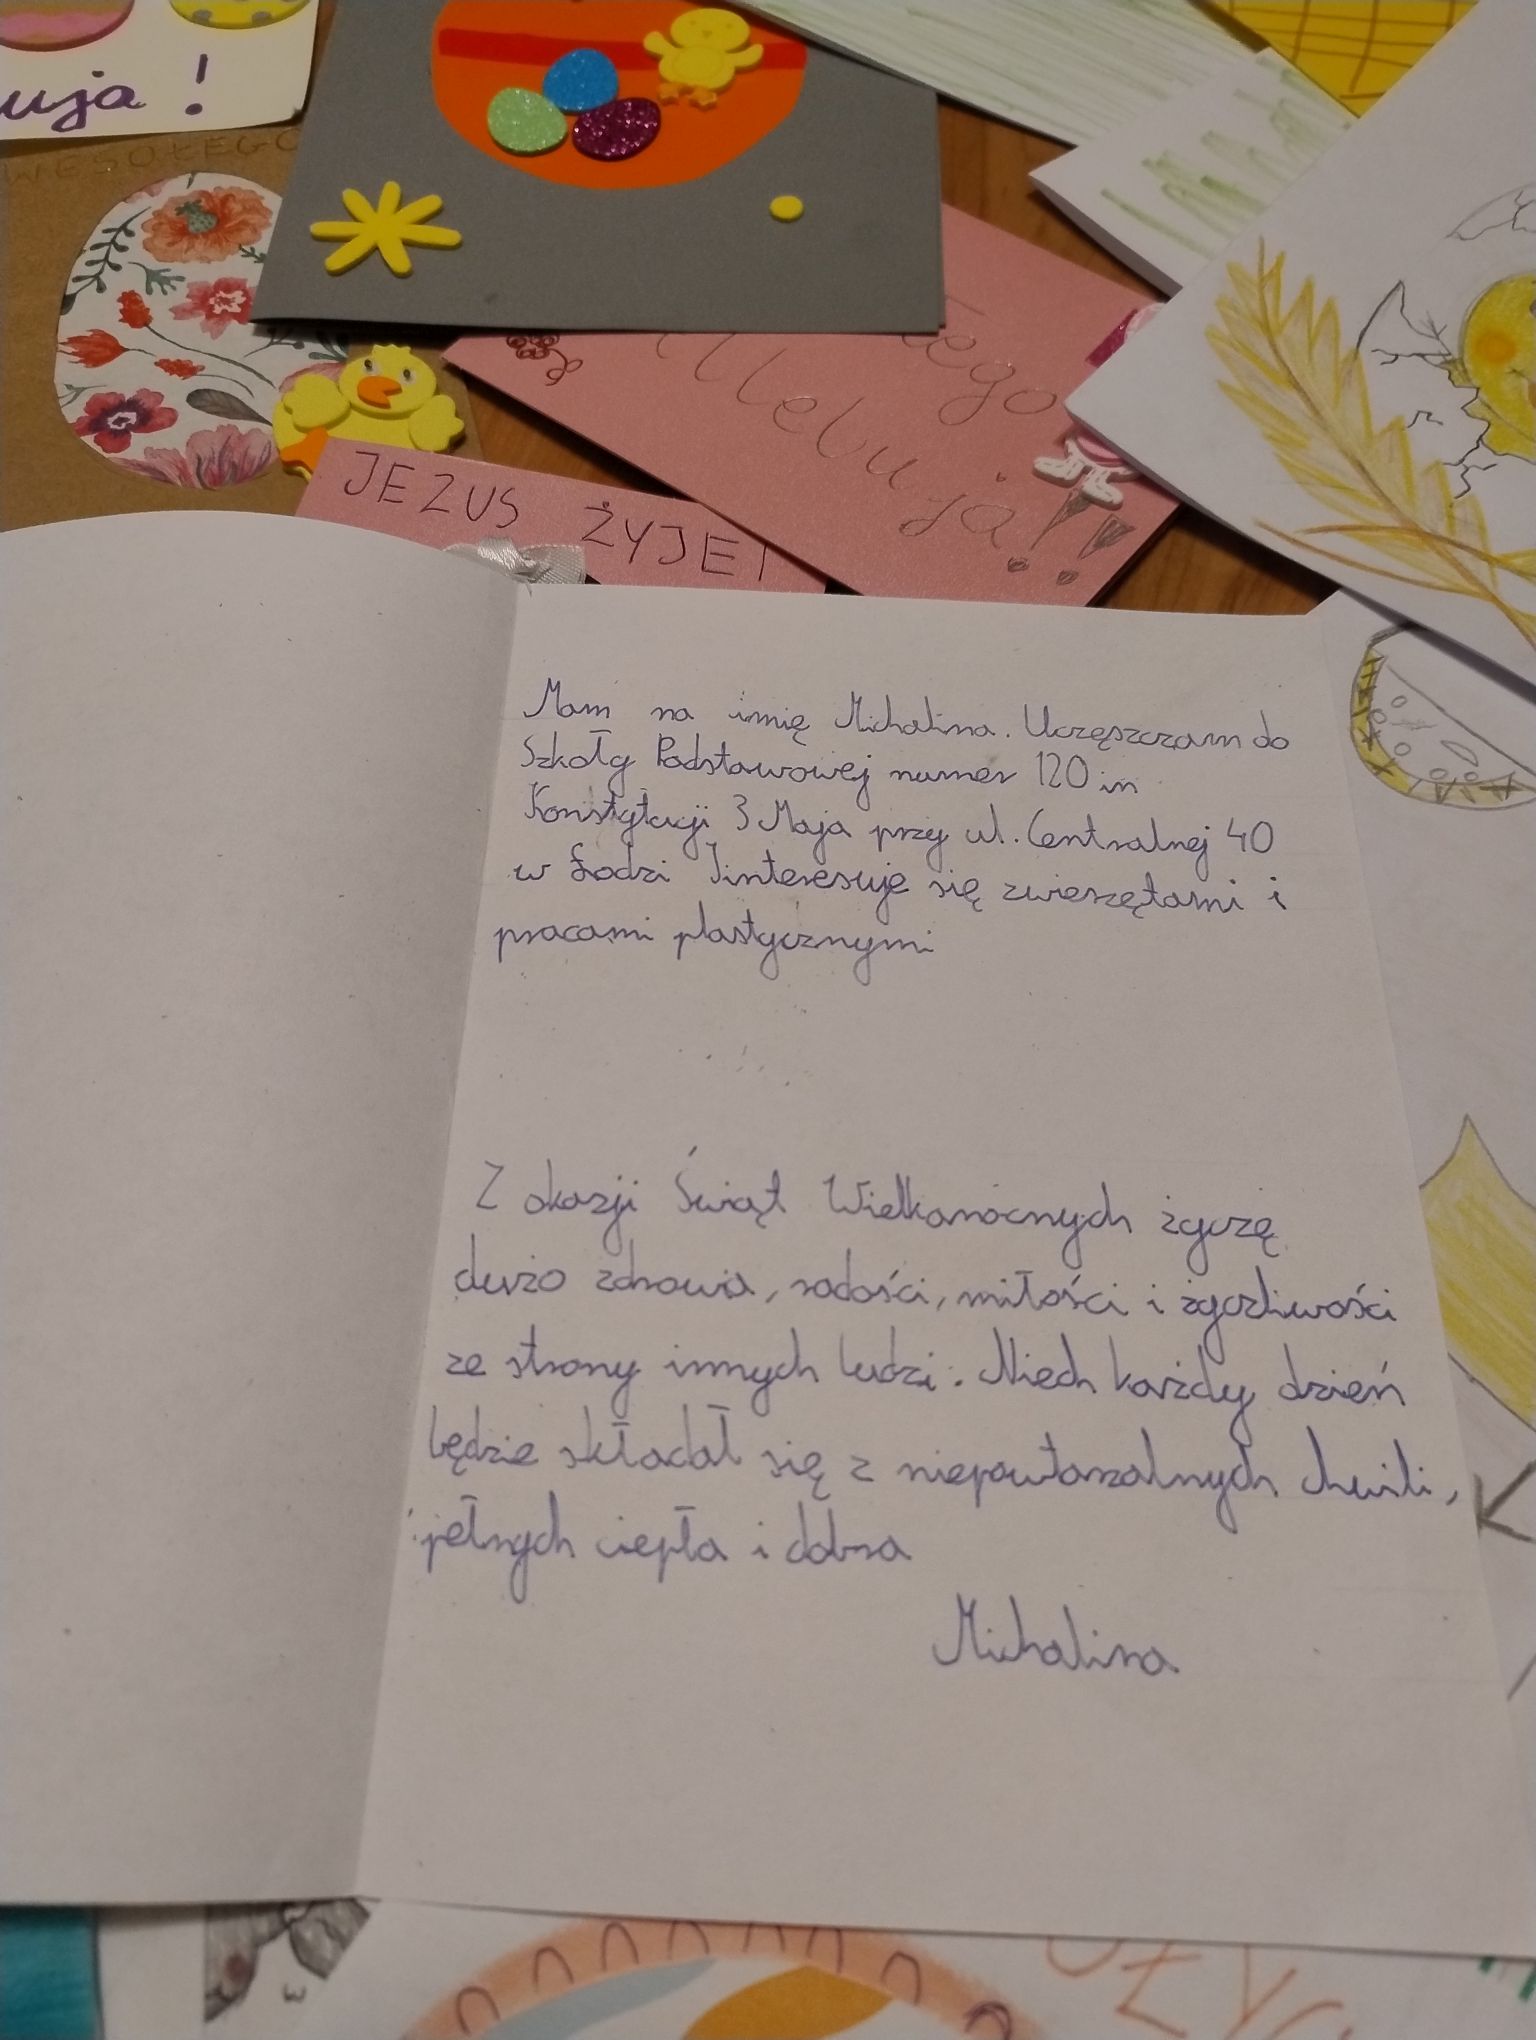 uja!
WESOŁEGO
ego
lleluja!!
JEZUS ŻYJE!
Mam na imię Michalina. Uczęszczam do
Szkoły Podstawowej numer 120 im
Konstytucji 3 Maja przy ul. Centralnej 40
w Łodzi Iinteresuje się zwierzętami i
pracami plastycznymi
Z okazji Świąt Wielkanocnych życzę
dużo zdrowia, radości, miłości i życzliwości
ze strony innych ludzi. Niech każdy dzień
będzie składał się z niepowtarzalnych chwili,
pełnych ciepła i dobra
Michalina